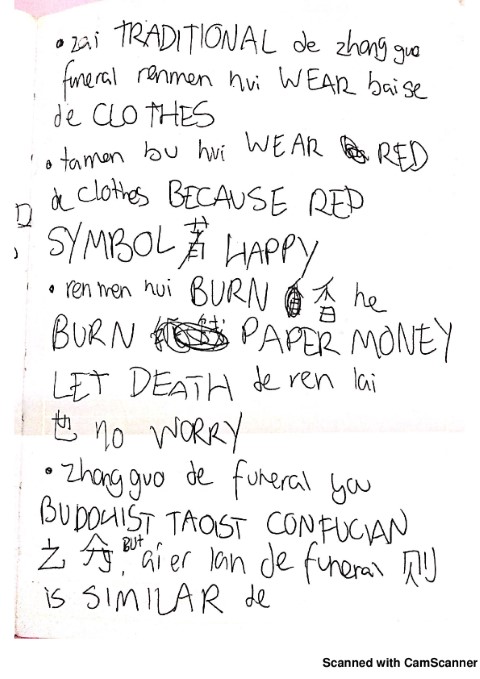 • zai TRADITIONAL de zhong guo
funeral renmen hui WEAR baise
de CLOTHES
• tamen bu hui WEAR RED
de clothes BECAUSE RED
SYMBOL 着 HAPPY
• ren men hui BURN 香 he
BURN PAPER MONEY
LET DEATH de ren lai
世 no WORRY
• zhong guo de funeral you
BUDDHIST TAOIST CONFUCIAN
之分, BUT ai er lan de funeral 则
is SIMILAR de
Scanned with CamScanner